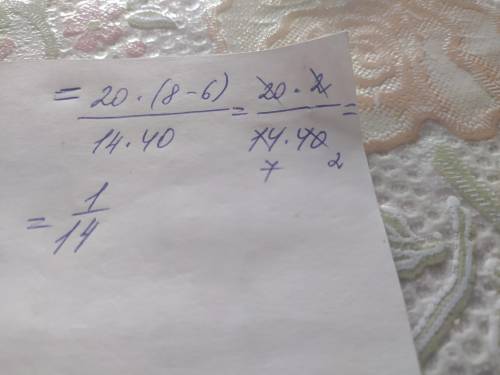 = 20 · (8 - 6) / 14 · 40 = 20 · 2 / 14 · 40 =
7 2
= 1 / 14